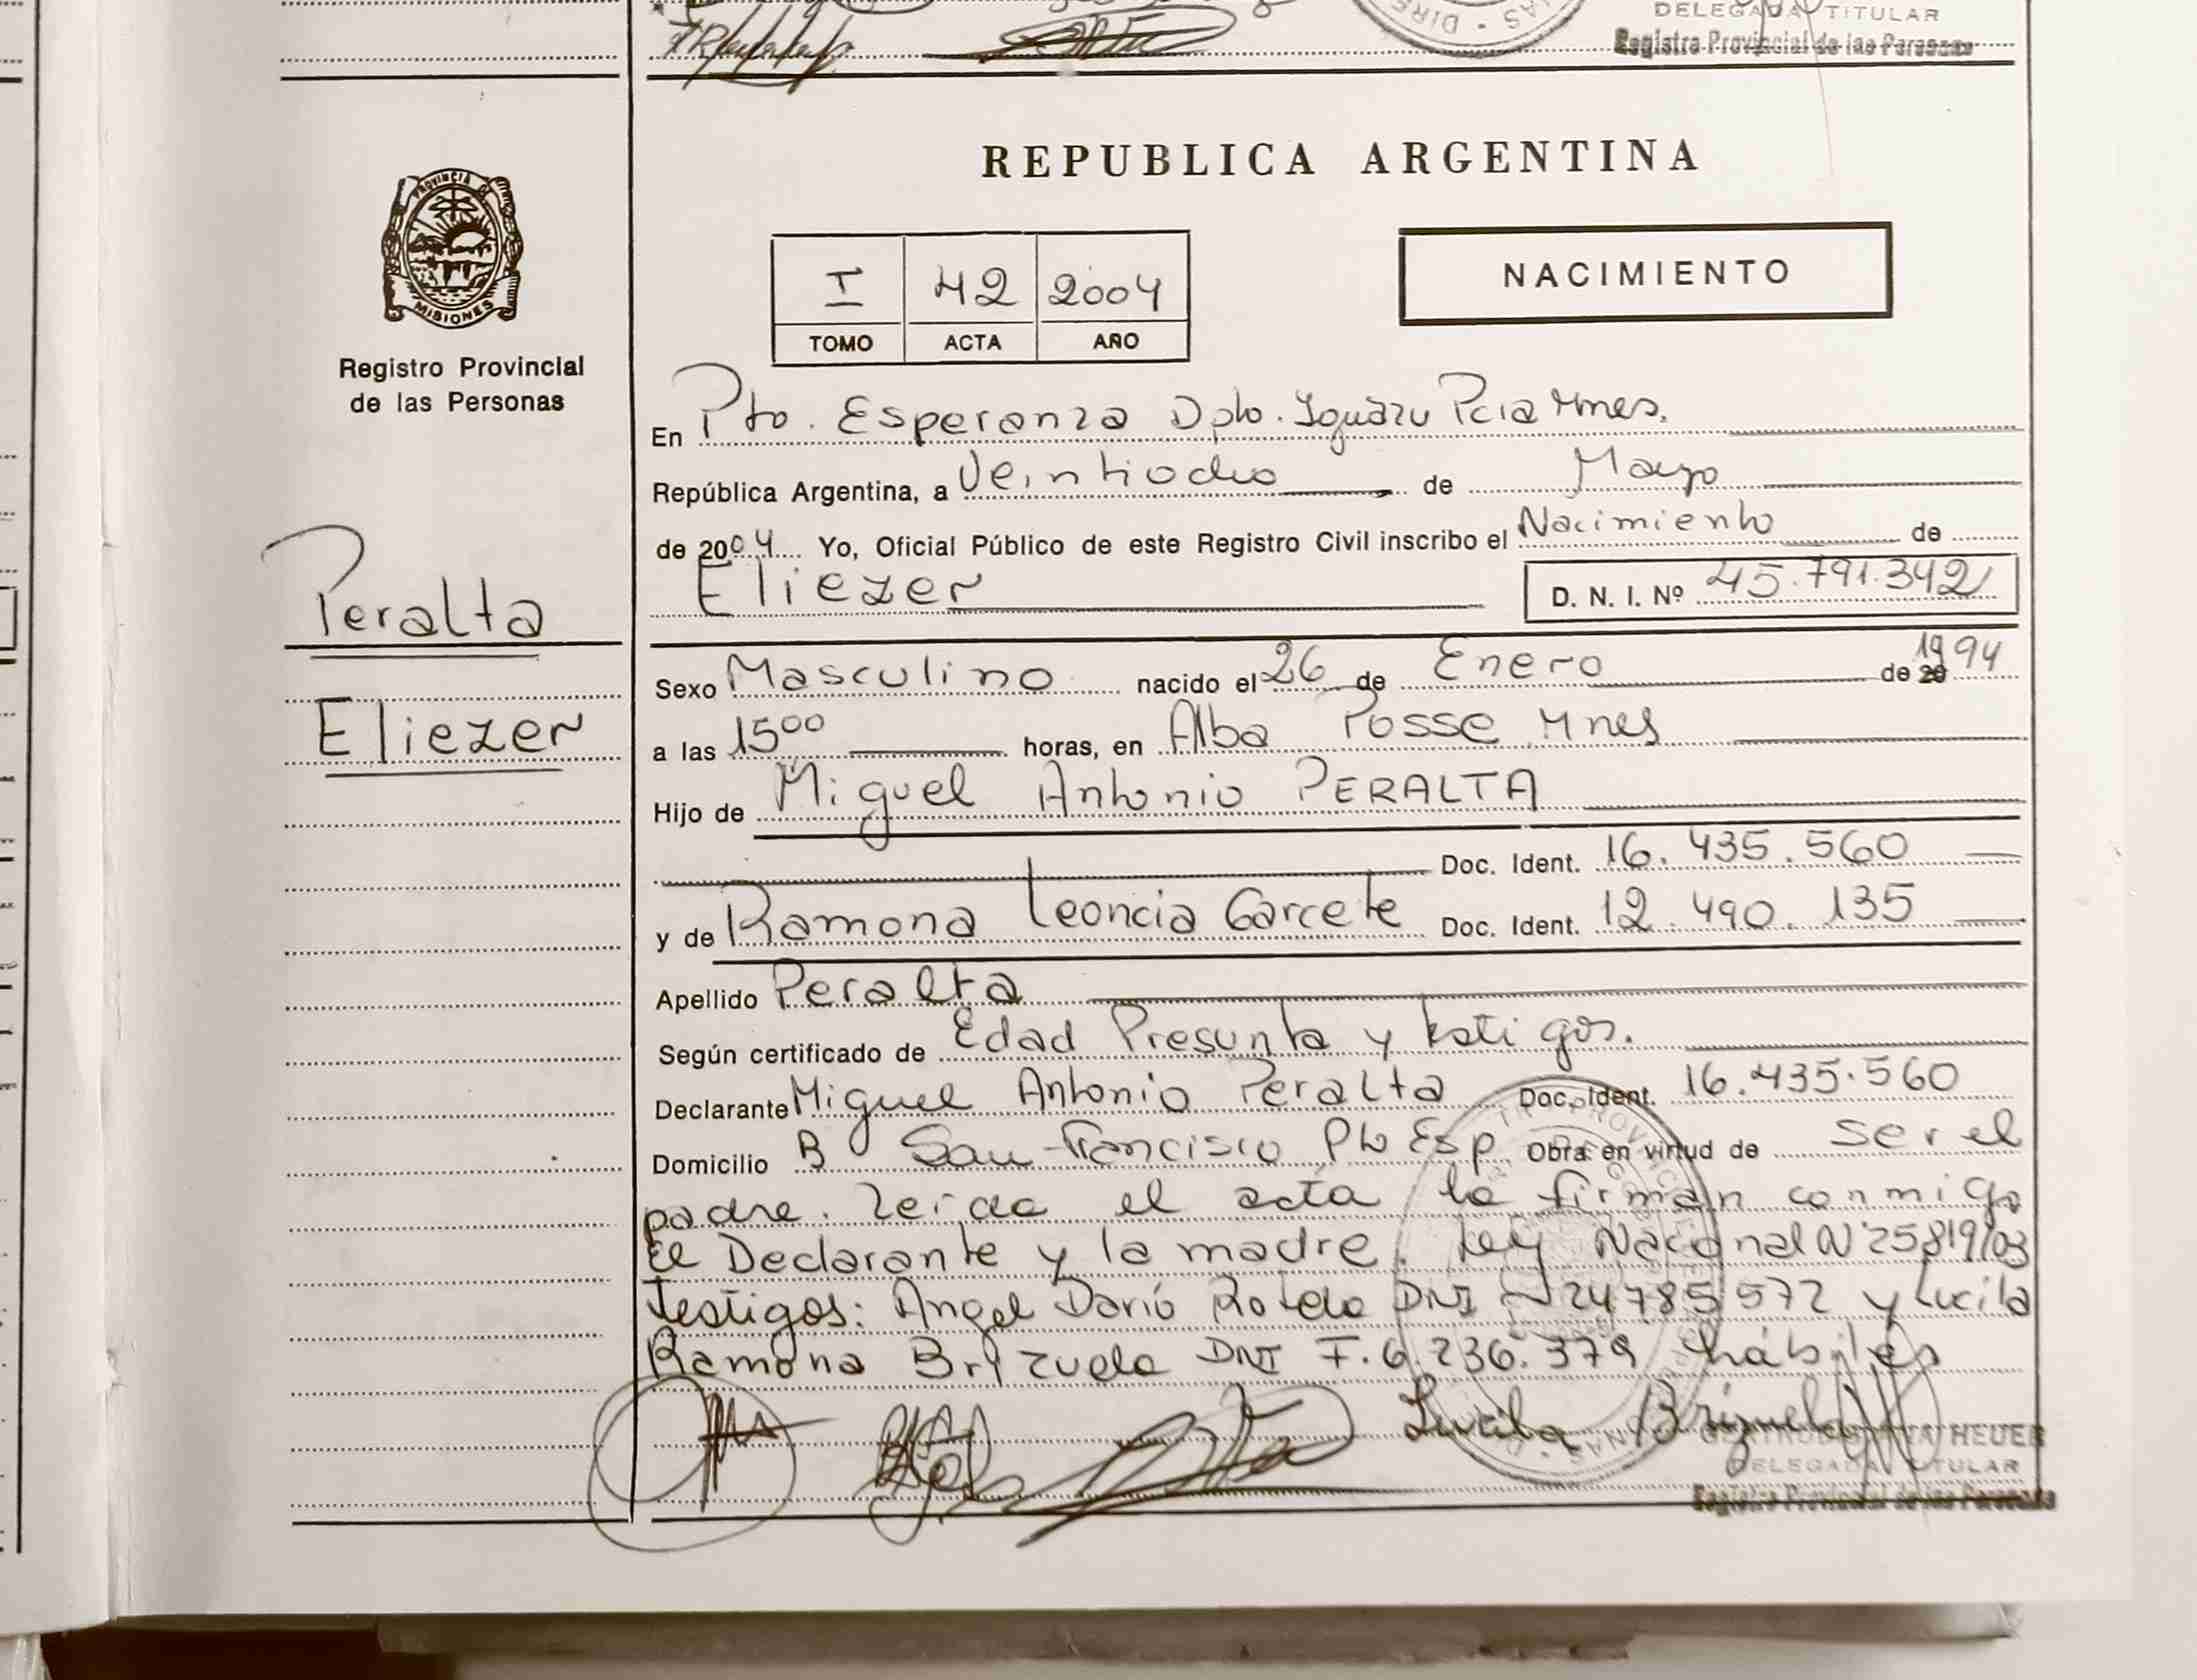 DELEGADA TITULAR
Registro Provincial de las Personas
REPUBLICA ARGENTINA
PROVINCIA DE
MISIONES
Registro Provincial
de las Personas
Peralta
Eliezer
I 42 2004
TOMO ACTA AÑO
NACIMIENTO
En Pto. Esperanza Dpto. Iguazu Pcia Mnes.
República Argentina, a Veintiocho de Mayo
de 2004 Yo, Oficial Público de este Registro Civil inscribo el Nacimiento de
Eliezer D. N. I. Nº 45.791.342
Sexo Masculino nacido el 26 de Enero de 20 1994
a las 15 00 horas, en Alba Posse Mnes
Hijo de Miguel Antonio PERALTA
Doc. Ident. 16.435.560
y de Ramona Leoncia Garcete Doc. Ident. 12.490.135
Apellido Peralta
Según certificado de Edad Presunta y testigos.
Declarante Miguel Antonio Peralta Doc. Ident. 16.435.560
Domicilio Bº San Francisco Pto Esp Obra en virtud de ser el
padre. Leida el acta la firman conmigo
el Declarante y la madre. Ley Nacional Nº 25819/03
testigos: Angel Darío Rotela DNI 24785572 y Lucila
Ramona Brizuela DNI F.6.236.379 hábiles
Lucila Brizuela
DELEGADA TITULAR
Registro Provincial de las Personas